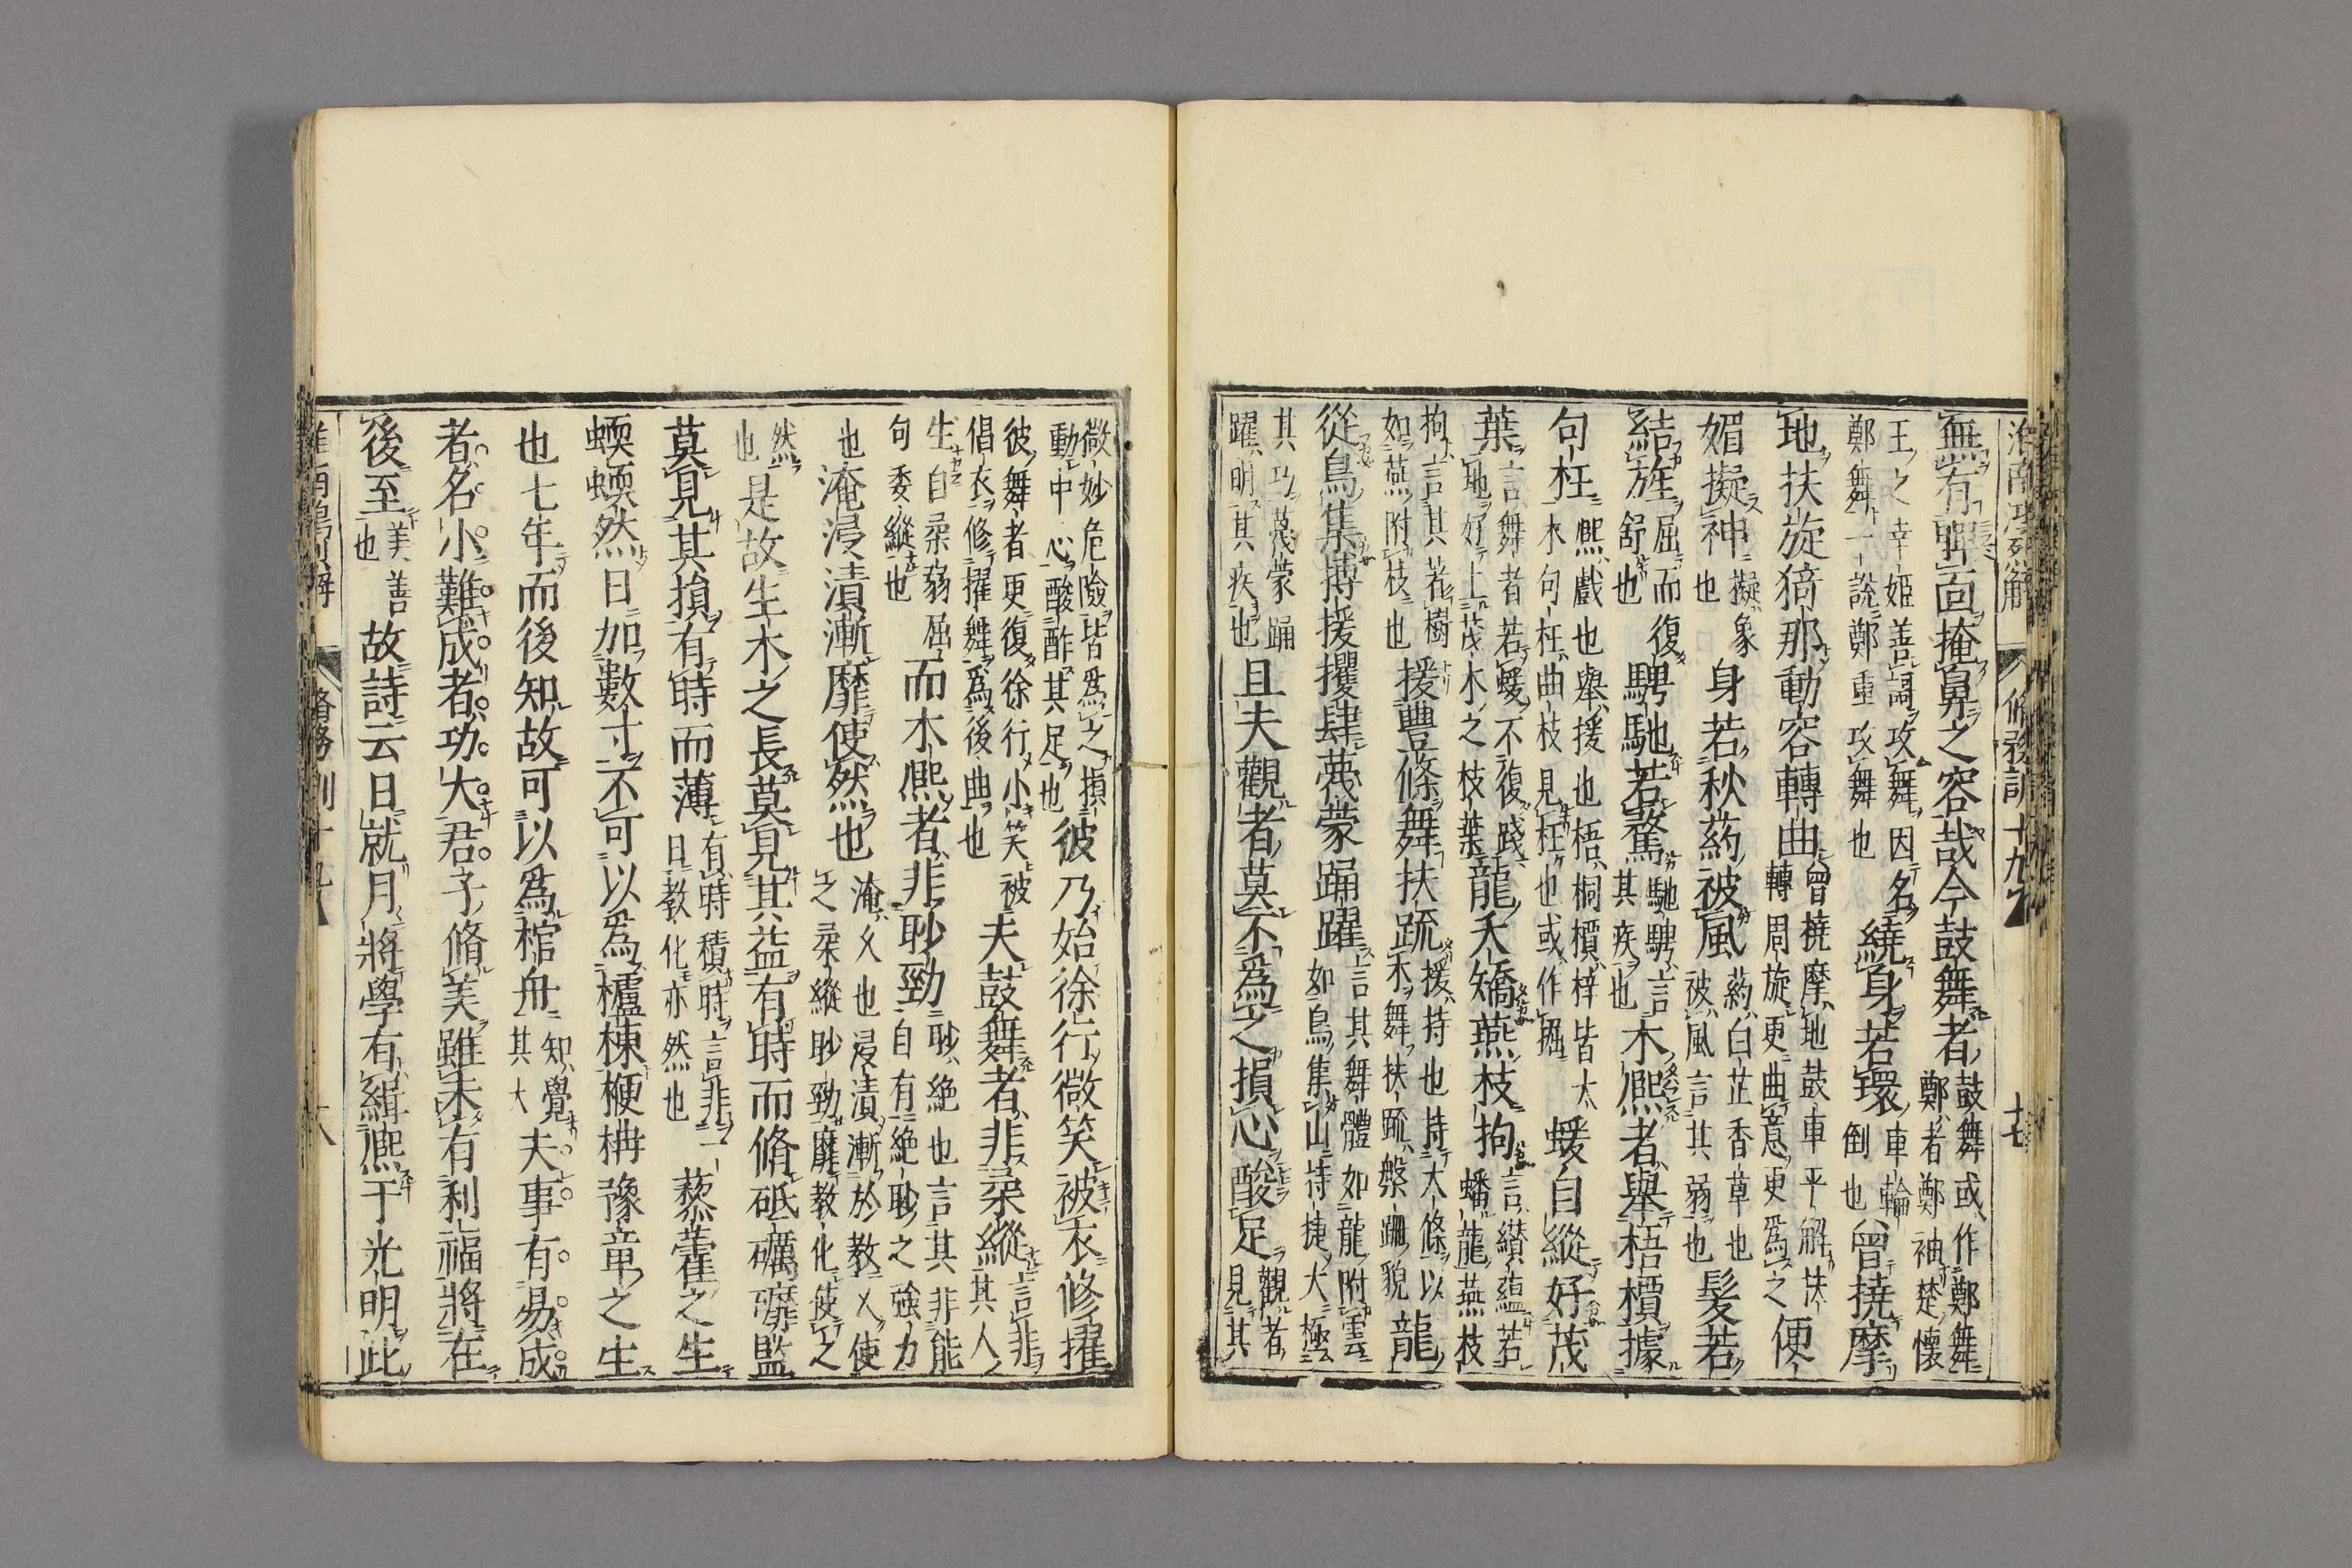 淮南鴻烈解 脩務訓十九 十七
無有睥面掩鼻之容哉今鼓舞者鼓舞或作鄭舞鄭者鄭袖楚懷
王之幸姬善謌攻舞因名鄭舞一說鄭重攻舞也繞身若環車輪倒也曾撓摩
地扶旋猗那動容轉曲曾撓摩地鼓車平解扶轉周旋更曲意更爲之便
媚擬神擬象也身若秋葯被風葯白芷香草也被風言其弱也髮若
結旌屈而復舒也騁馳若騖馳騁言其疾也木熙者舉梧檟據
句枉熙戲也舉援也梧桐檟梓皆大木句枉曲枝見枉也或作掘蝯自縱好茂
葉言舞者若蝯不復踐地好上茂木之枝葉龍夭矯燕枝拘言纉蘊若蟠龍燕枝
拘言其著樹如燕附枝也援豐條舞扶疏援持也持大條以木舞扶疏槃跚貌龍
從鳥集搏援攫肆薎蒙踊躍言其舞體如龍附雲如鳥集山持捷大極
其巧薎蒙踊躍明其疾也且夫觀者莫不爲之損心酸足觀者見其
微妙危險皆爲之損動中心酸酢其足也彼乃始徐行微笑被衣修擢
彼舞者更復徐行小笑被倡衣修擢舞爲後曲也夫鼓舞者非柔縱言非其人
生自柔弱屈句委縱也而木熙者非眇勁眇絶也言其非能自有絶眇之強力
也淹浸漬漸靡使然也淹久也浸漬漸於教久使之柔縱眇勁靡教化使之
然也是故生木之長莫見其益有時而脩砥礪䃺監
莫見其損有時而薄有時積時言非一日教化亦然也藜藿之生
蝡蝡然日加數寸不可以爲櫨棟楩柟豫章之生
也七年而後知故可以爲棺舟知覺其大夫事有易成
者名小難成者功大君子脩美雖未有利福將在
後至美善也故詩云日就月將學有緝熙于光明此
脩務訓十九 十八